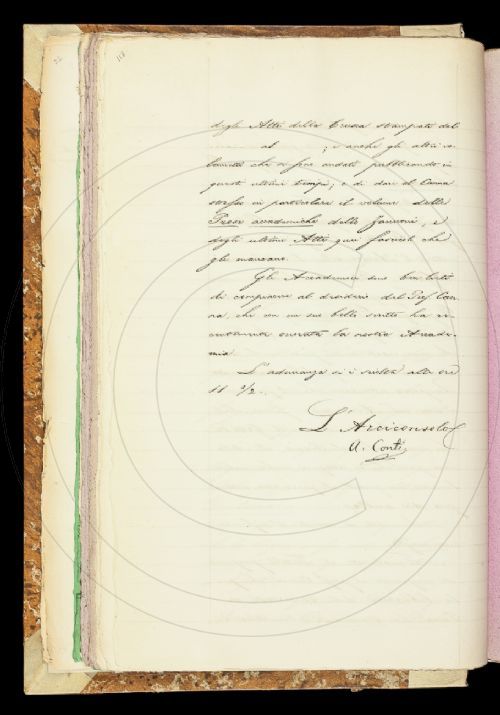 118
degli Atti della Crusca stampati dal
al ; e anche gli altri vo-
lumetti che si son andati pubblicando in
questi ultimi tempi; e di dare al Canna
stesso in particolare il volume delle
Prose accademiche dello Zannoni, e
degli ultimi Atti quei fascicoli che
gli mancano.
Gli Accademici son ben lieti
di compiacere al desiderio del Prof. Can-
na, che con un suo bello scritto ha re-
centemente onorata la nostra Accade-
mia.
L'adunanza si è sciolta alle ore
11 1/2.
L'Arciconsolo
A. Conti